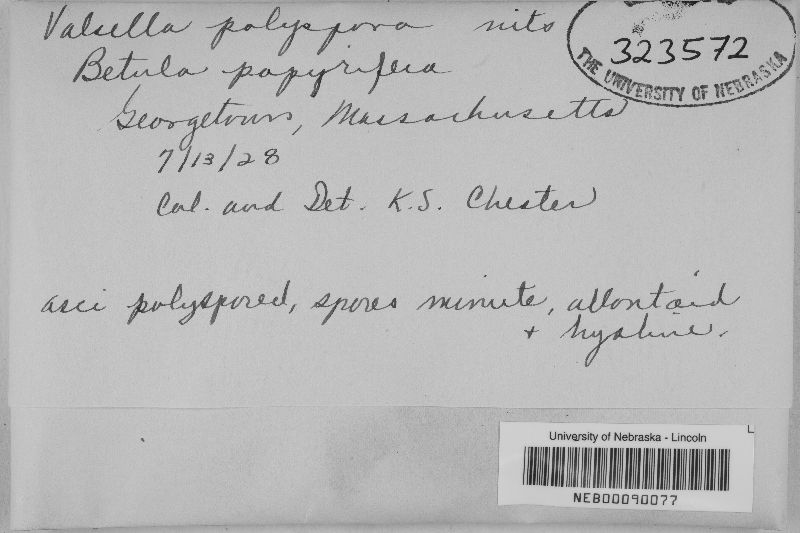 Valsella polyspora nits
323572
THE UNIVERSITY OF NEBRASKA
Betula papyrifera
Georgetown, Massachusetts
7/13/28
Col. and Det. K.S. Chester
asci polyspored, spores minute, allontoid
+ hyaline.
University of Nebraska - Lincoln
NEB00090077